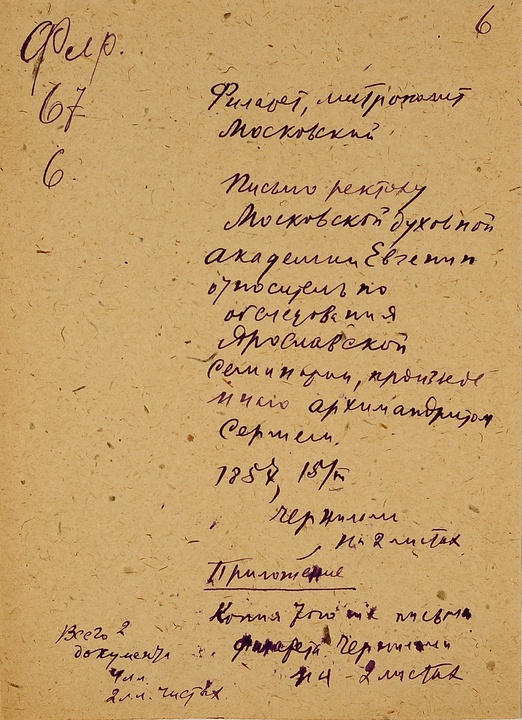 6
Флр.
67
6
Филарет, митрополит
Московский
Письмо ректору
Московской духовной
академии Евгению
относительно
обследования
Ярославской
семинарии, произведен
ного архимандритом
Сергием.
1857, 15/III
Чернилом
на 2 листах
Приложение
Копия того же письма
Филарета Чернилами
на 2 листах
Всего 2
документа
4 лл.
2 лл. чистых